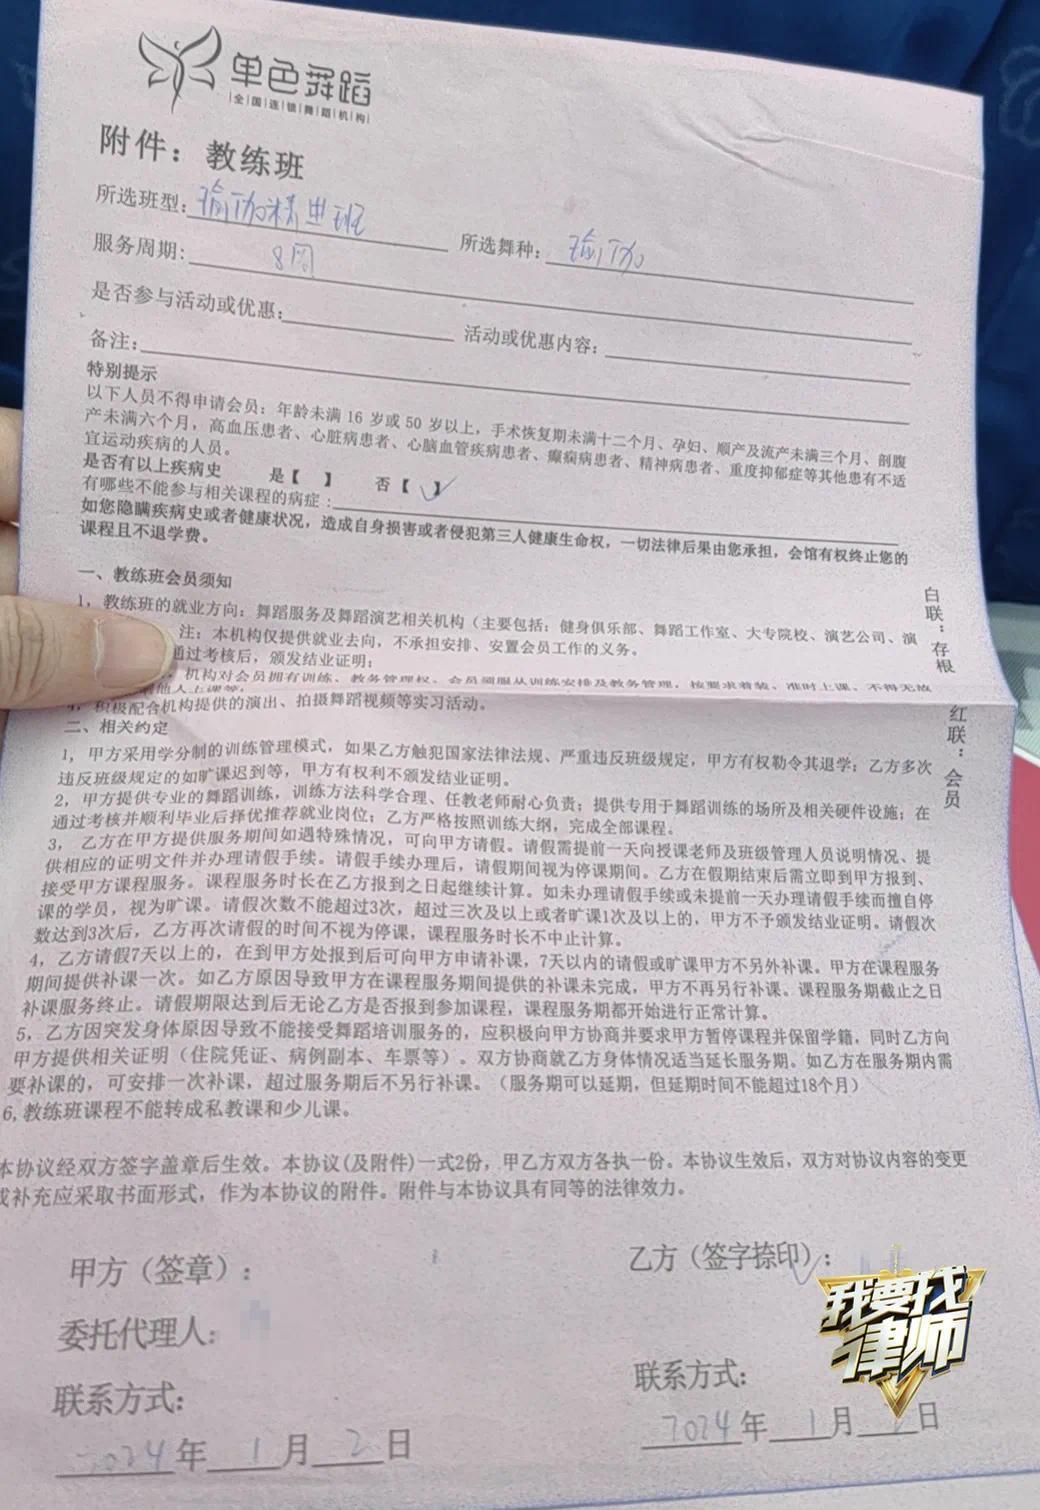 单色舞蹈
全国连锁舞蹈机构
附件：教练班
所选班型: 瑜伽精进班 所选舞种: 瑜伽
服务周期: 8周
是否参与活动或优惠: 活动或优惠内容:
备注:
特别提示
以下人员不得申请会员：年龄未满 16 岁或 50 岁以上，手术恢复期未满十二个月、孕妇、顺产及流产未满三个月、剖腹
产未满六个月，高血压患者、心脏病患者、心脑血管疾病患者、癫痫病患者、精神病患者、重度抑郁症等其他患有不适
宜运动疾病的人员。
是否有以上疾病史 是【 】 否【 ✓ 】
有哪些不能参与相关课程的病症：
如您隐瞒疾病史或者健康状况，造成自身损害或者侵犯第三人健康生命权，一切法律后果由您承担，会馆有权终止您的
课程且不退学费。
一、教练班会员须知
1，教练班的就业方向：舞蹈服务及舞蹈演艺相关机构（主要包括：健身俱乐部、舞蹈工作室、大专院校、演艺公司、演
注：本机构仅提供就业去向，不承担安排、安置会员工作的义务。
通过考核后，颁发结业证明；
机构对会员拥有训练、教务管理权，会员须服从训练安排及教务管理，按要求着装、准时上课、不得无故
他人上课等；
4，积极配合机构提供的演出、拍摄舞蹈视频等实习活动。
二、相关约定
1，甲方采用学分制的训练管理模式，如果乙方触犯国家法律法规、严重违反班级规定，甲方有权勒令其退学；乙方多次
违反班级规定的如旷课迟到等，甲方有权利不颁发结业证明。
2，甲方提供专业的舞蹈训练，训练方法科学合理、任教老师耐心负责；提供专用于舞蹈训练的场所及相关硬件设施；在
通过考核并顺利毕业后择优推荐就业岗位；乙方严格按照训练大纲，完成全部课程。
3，乙方在甲方提供服务期间如遇特殊情况，可向甲方请假。请假需提前一天向授课老师及班级管理人员说明情况、提
供相应的证明文件并办理请假手续。请假手续办理后，请假期间视为停课期间。乙方在假期结束后需立即到甲方报到、
接受甲方课程服务。课程服务时长在乙方报到之日起继续计算。如未办理请假手续或未提前一天办理请假手续而擅自停
课的学员，视为旷课。请假次数不能超过3次，超过三次及以上或者旷课1次及以上的，甲方不予颁发结业证明。请假次
数达到3次后，乙方再次请假的时间不视为停课，课程服务时长不中止计算。
4，乙方请假7天以上的，在到甲方处报到后可向甲方申请补课，7天以内的请假或旷课甲方不另外补课。甲方在课程服务
期间提供补课一次。如乙方原因导致甲方在课程服务期间提供的补课未完成，甲方不再另行补课。课程服务期截止之日
补课服务终止。请假期限达到后无论乙方是否报到参加课程，课程服务期都开始进行正常计算。
5，乙方因突发身体原因导致不能接受舞蹈培训服务的，应积极向甲方协商并要求甲方暂停课程并保留学籍，同时乙方向
甲方提供相关证明（住院凭证、病例副本、车票等）。双方协商就乙方身体情况适当延长服务期。如乙方在服务期内需
要补课的，可安排一次补课，超过服务期后不另行补课。（服务期可以延期，但延期时间不能超过18个月）
6,教练班课程不能转成私教课和少儿课。
本协议经双方签字盖章后生效。本协议(及附件)一式2份，甲乙方双方各执一份。本协议生效后，双方对协议内容的变更
或补充应采取书面形式，作为本协议的附件。附件与本协议具有同等的法律效力。
甲方（签章）： 乙方（签字捺印）：
委托代理人:
联系方式: 联系方式:
2024年 1 月 2 日 2024年 1 月 日
白联：存根
红联：会员
我要找律师